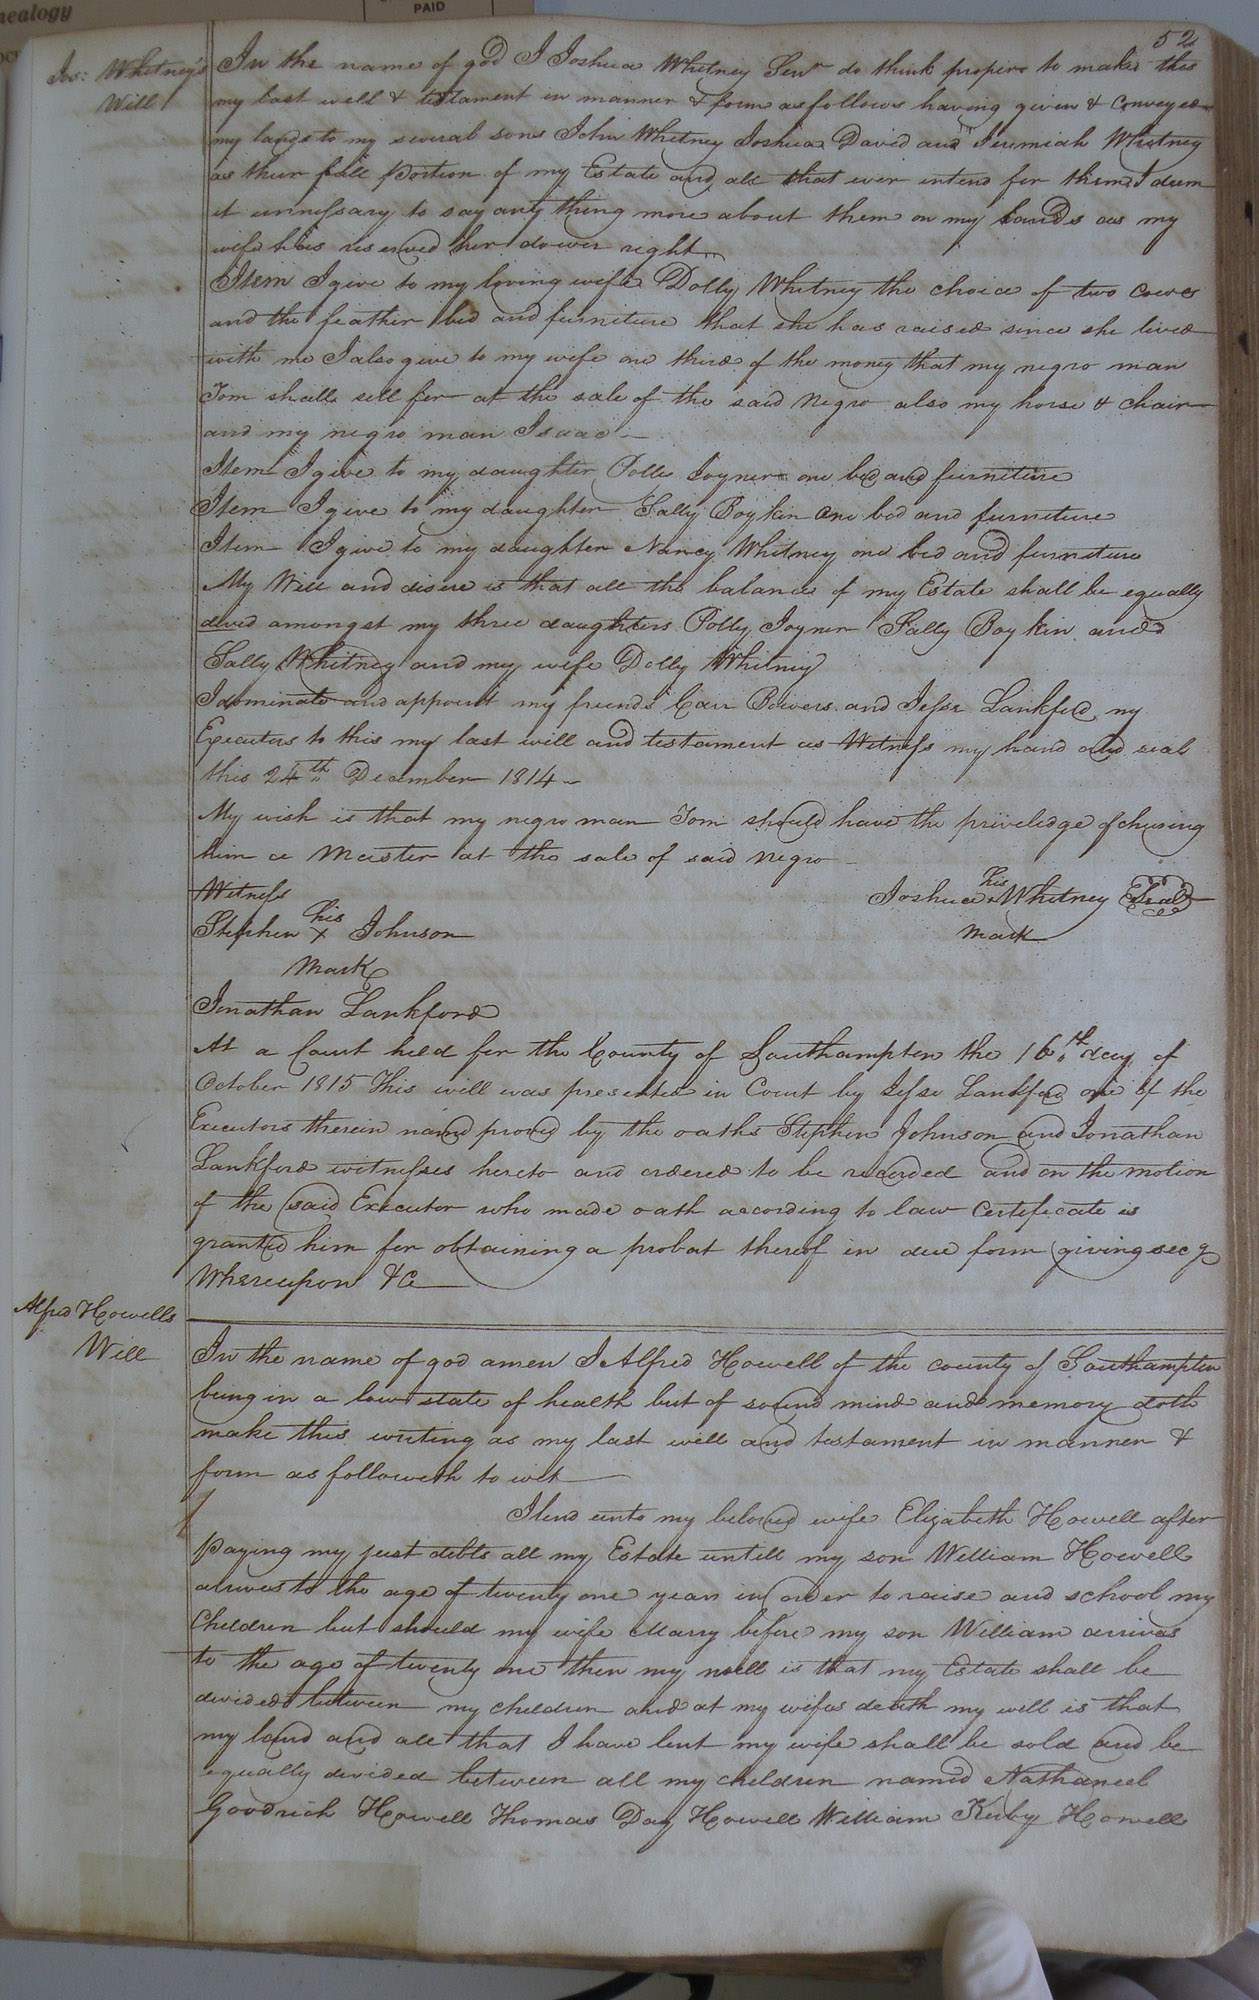 nealogy
PAID
52
Jos: Whitney's
Will
In the name of god I Joshua Whitney Senr do think proper to make this
my last well & testament in manner & form as follows having given & Conveyed
my lands to my several sons John Whitney Joshua David and Jeremiah Whitney
as their full portion of my Estate and all that ever intend for them I deem
it unnessary to say any thing more about them or my lands as my
wife has reserved her dower right
Item I give to my loving wife Dolly Whitney the choice of two cows
and the feather bed and furniture that she has raised since she lived
with me I also give to my wife one third of the money that my negro man
Tom shall sell for at the sale of the said Negro also my horse & chair
and my negro man Isaac
Item I give to my daughter Polle Joyner one bed and furniture
Item I give to my daughter Sally Boykin one bed and furniture
Item I give to my daughter Nancy Whitney one bed and furniture
My Will and disire is that all the balance of my Estate shall be equally
devid amongst my three daughters Polly Joyner Sally Boykin and
Sally Whitney and my wife Dolly Whitney
I nominate and appoint my friends Carr Bowers and Jesse Lankford my
Executors to this my last will and testament as Witness my hand and seal
this 24th December 1814
My wish is that my negro man Tom should have the priviledge of chusing
him a Master at the sale of said Negro
Witness
Joshua his Whitney Seal
Stephen his x Johnson
mark
Mark
Jonathan Lankford
At a Court held for the County of Southampton the 16th day of
October 1815 This will was presented in Court by Jesse Lankford one of the
Executors therein named proved by the oaths Stephen Johnson and Jonathan
Lankford witnesses hereto and ordered to be recorded and on the motion
of the said Executor who made oath according to law Certificate is
granted him for obtaining a probat thereof in due form giving secy
Whereupon &C
Alfred Howells
Will
In the name of god amen I Alfred Howell of the county of Southampton
being in a low state of health but of sound mind and memory doth
make this writing as my last well and testament in manner &
form as followeth to wit
I lend unto my beloved wife Elizabeth Howell after
paying my just debts all my Estate untill my son William Howell
arrives to the age of twenty one years in order to raise and school my
Children but should my wife Marry before my son William arrives
to the age of twenty one then my will is that my Estate shall be
divided between my children and at my wifes death my will is that
my land and all that I have lent my wife shall be sold and be
equally divided between all my children named Nathaneel
Goodrich Howell Thomas Day Howell William Kirby Howell